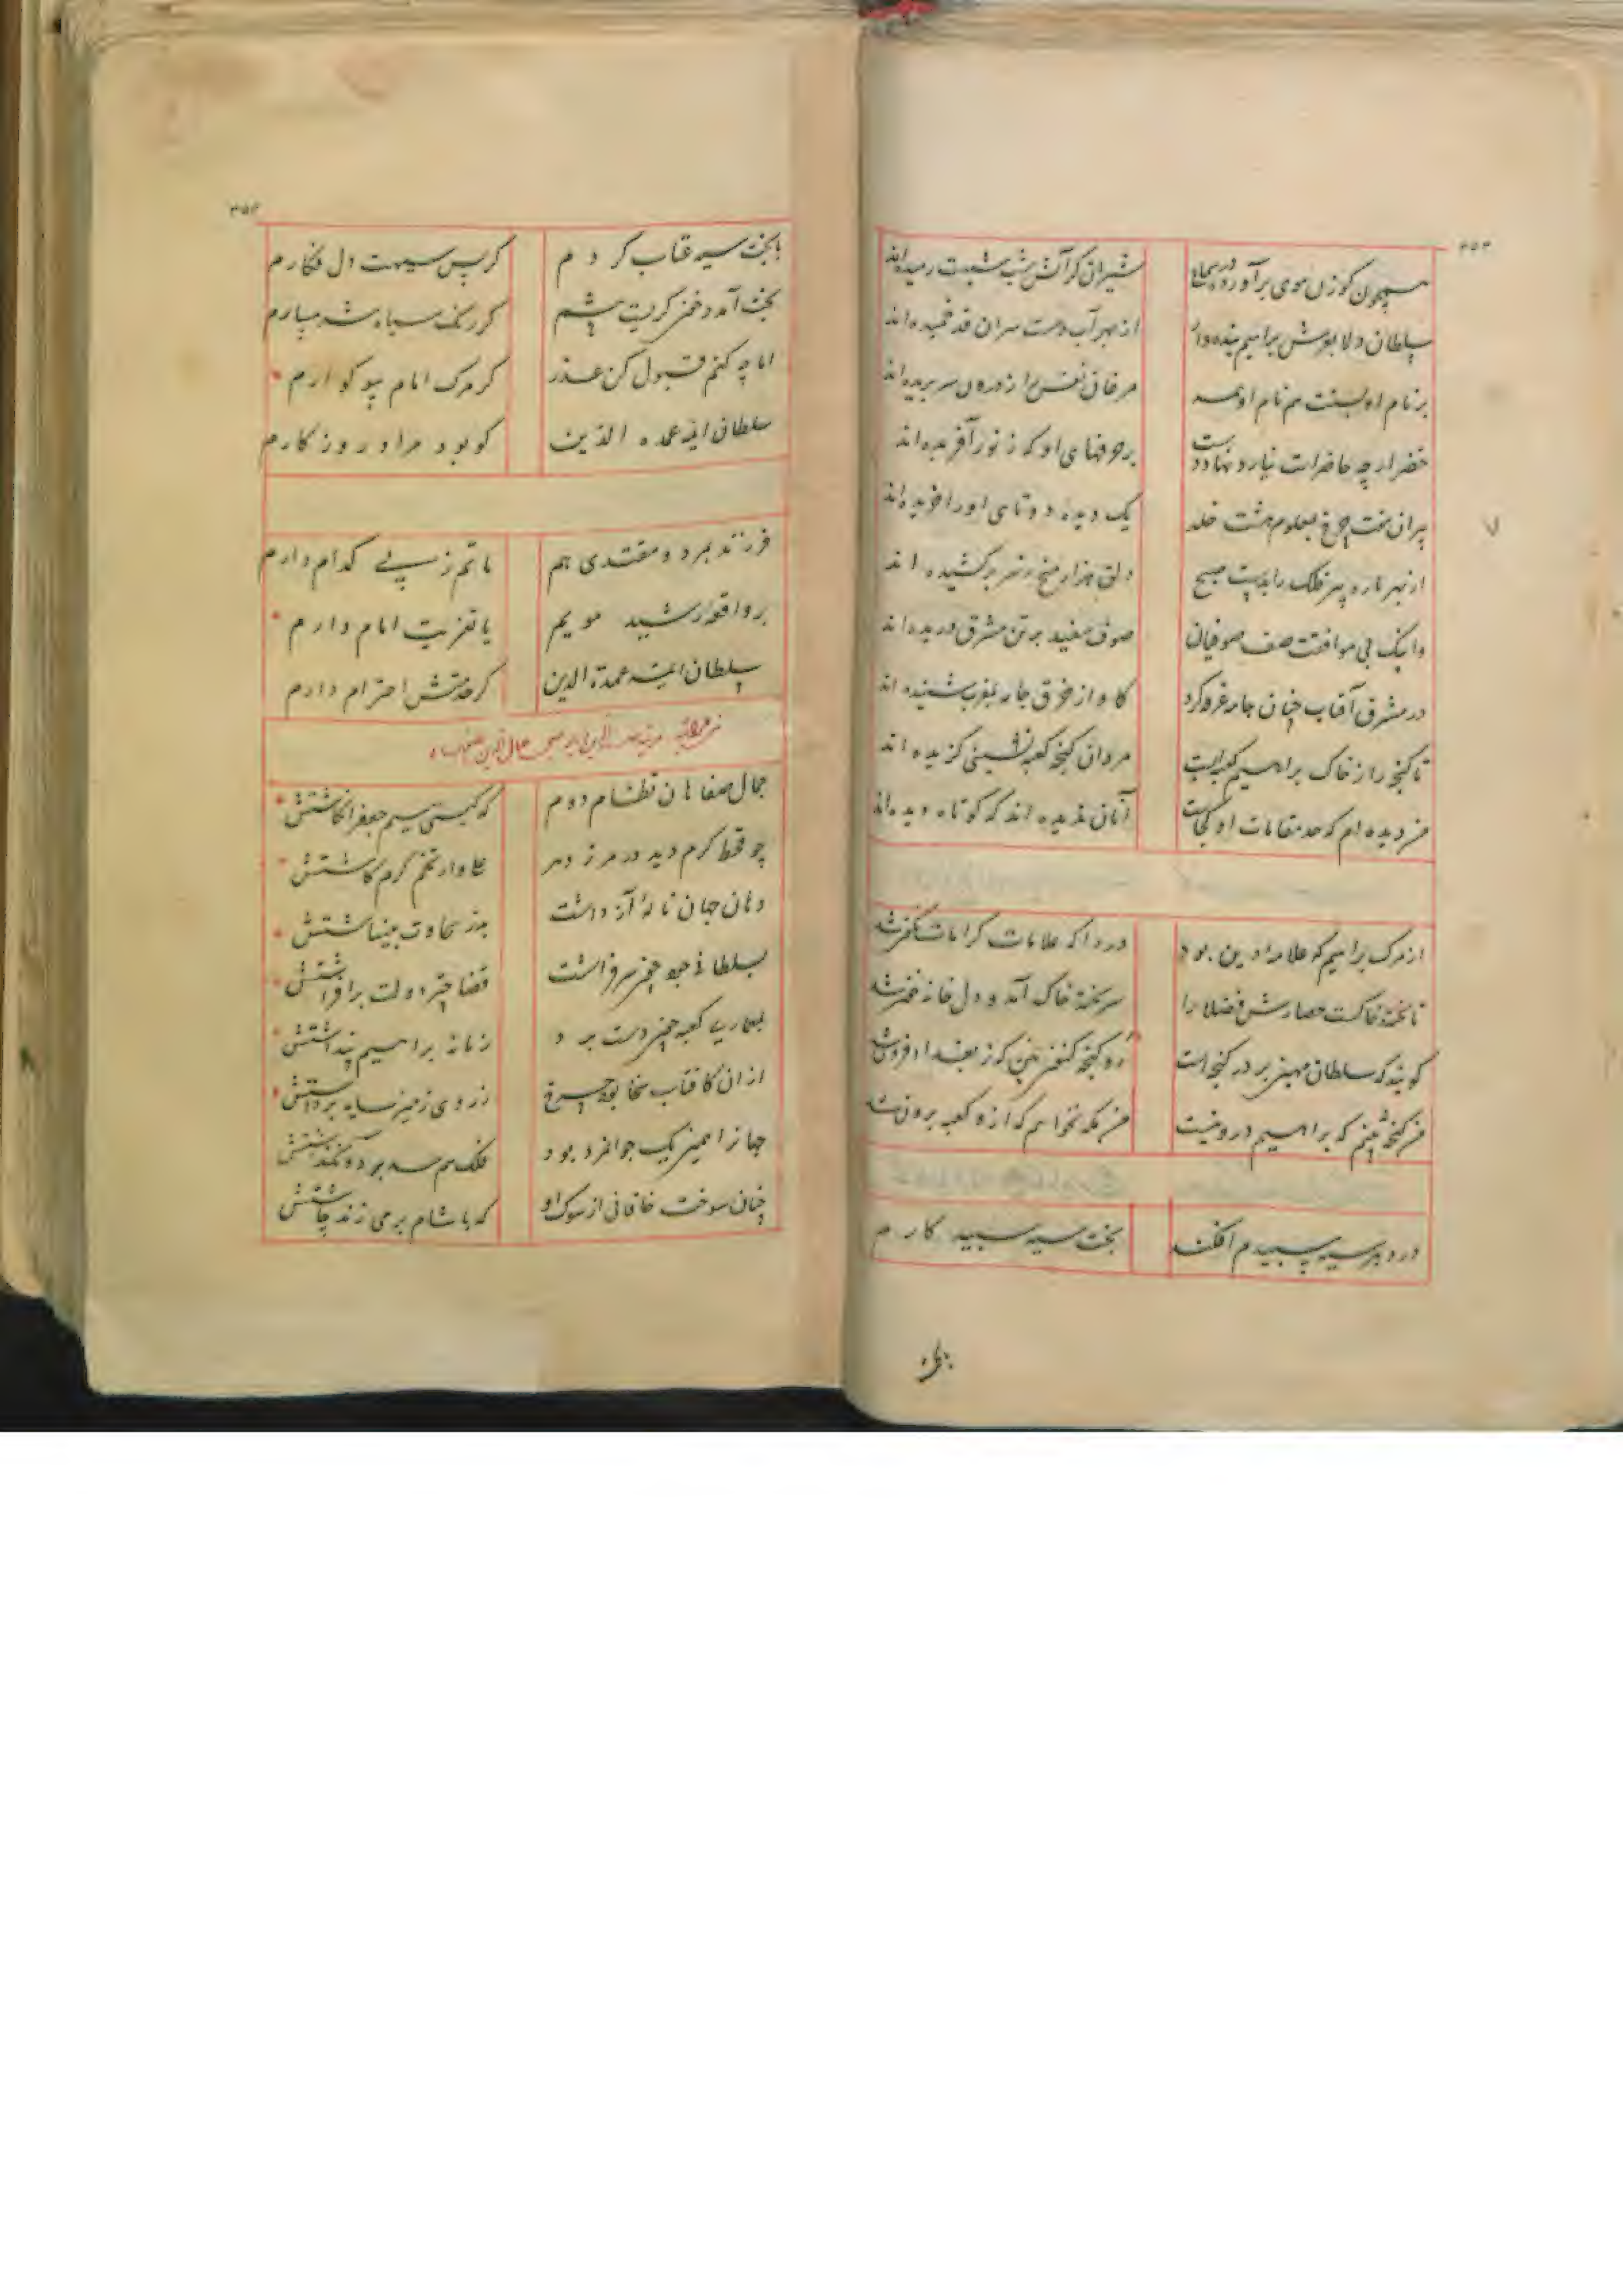 ۳۵۳
همچون گوزن هوی برآورده در سماع شیران کز آتش شب شبهت رمیده‌اند
سلطان دلا بوش براهیم بنده‌وار از بهر آب دست سران قد خمیده‌اند
بر نام او بسنت هم نام او همه مرغان نفس را ز درون سر بریده‌اند
خضر ارچه حاضر است نیارد نهاد دست بر حرفهای او که ز نور آفریده‌اند
پیران هفت چرخ بمعلوم هشت خلد یک دیده دوتای او را خریده‌اند
از بهر پاره پیر فلک را بدست صبح دلق هزار میخ ز سر برکشیده‌اند
وانیک پی موافقت صف صوفیان صوف سفید بر تن مشرق دریده‌اند
در مشرق آفتاب چنان جامه خرقه کرد کاواز خرق جامه بمغرب شنیده‌اند
تا گنجه را ز خاک براهیم کعبه ایست مردان گنجه کعبه نشینی گزیده‌اند
من دیده‌ام که حد مقامات او کجاست آنان ندیده‌اند که کوتاه دیده‌اند
از مرگ براهیم که علامه دین بود دردا که علامات کرامات نگون شد
تا تخته خاکست حصارش فضلا را سر تخته خاک آمد و دل خانه خون شد
گویند که سلطان مهین بر در گنجه است رو گنجه کنون بین که ز بغداد فزون شد
من گنجه نبینم که براهیم درو نیست من مکه نخواهم که ازو کعبه برون شد
درد به سیه سپیدم افکند بخت سیه سپید کارم
۳۵۴
با بخت سیه عتاب کردم کز پس سیهت دل فکارم
بخت آمد و خون گریست پیشم کز رنگ سیاه شرمسارم
اما چه کنم قبول کن عذر کز مرگ امام سوگوارم
سلطان ائمه عمدة الدین کو بود مراد روزگارم
فرزند بمرد و مقتدی هم ماتم ز پی کدام دارم
بر واقعه رشید مویم یا تعزیت امام دارم
سلطان ائمه عمدة الدین کز خدمتش احترام دارم
جمال صفاهان نظام دوم که گیتی سیم جعفر انگاشتش
چو قحط کرم دید در مرز دهر علی‌وار تخم کرم کاشتش
دهان جهان ناله آز داشت بدر سخاوت بینباشتش
بسلطانی جود چون سر فراشت قضا چتر دولت برافراشتش
بمعماری کعبه چون دست برد زمانه براهیم پنداشتش
از ان کافتاب سخا بود چرخ ز روی زمین سایه برداشتش
جهانرا همین یک جوانمرد بود فلک هم حسد برد و نگذاشتش
چنان سوخت خاقانی از سوک او که با شام برمی‌زند چاشتش